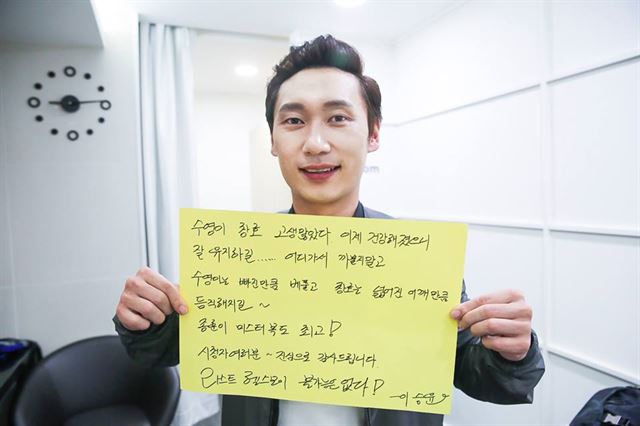 수영이 창호 고생많았다. 이제 건강해졌으니
잘 유지하길...... 어디가서 까불지말고
수영이는 빠진만큼 베풀고 창호는 넓어진 어깨만큼
듬직해지길~
종훈이 미스터복도 최고!
시청자여러분~ 진심으로 감사드립니다.
라스트 헬스보이 불가능은 없다!
-이승윤
om